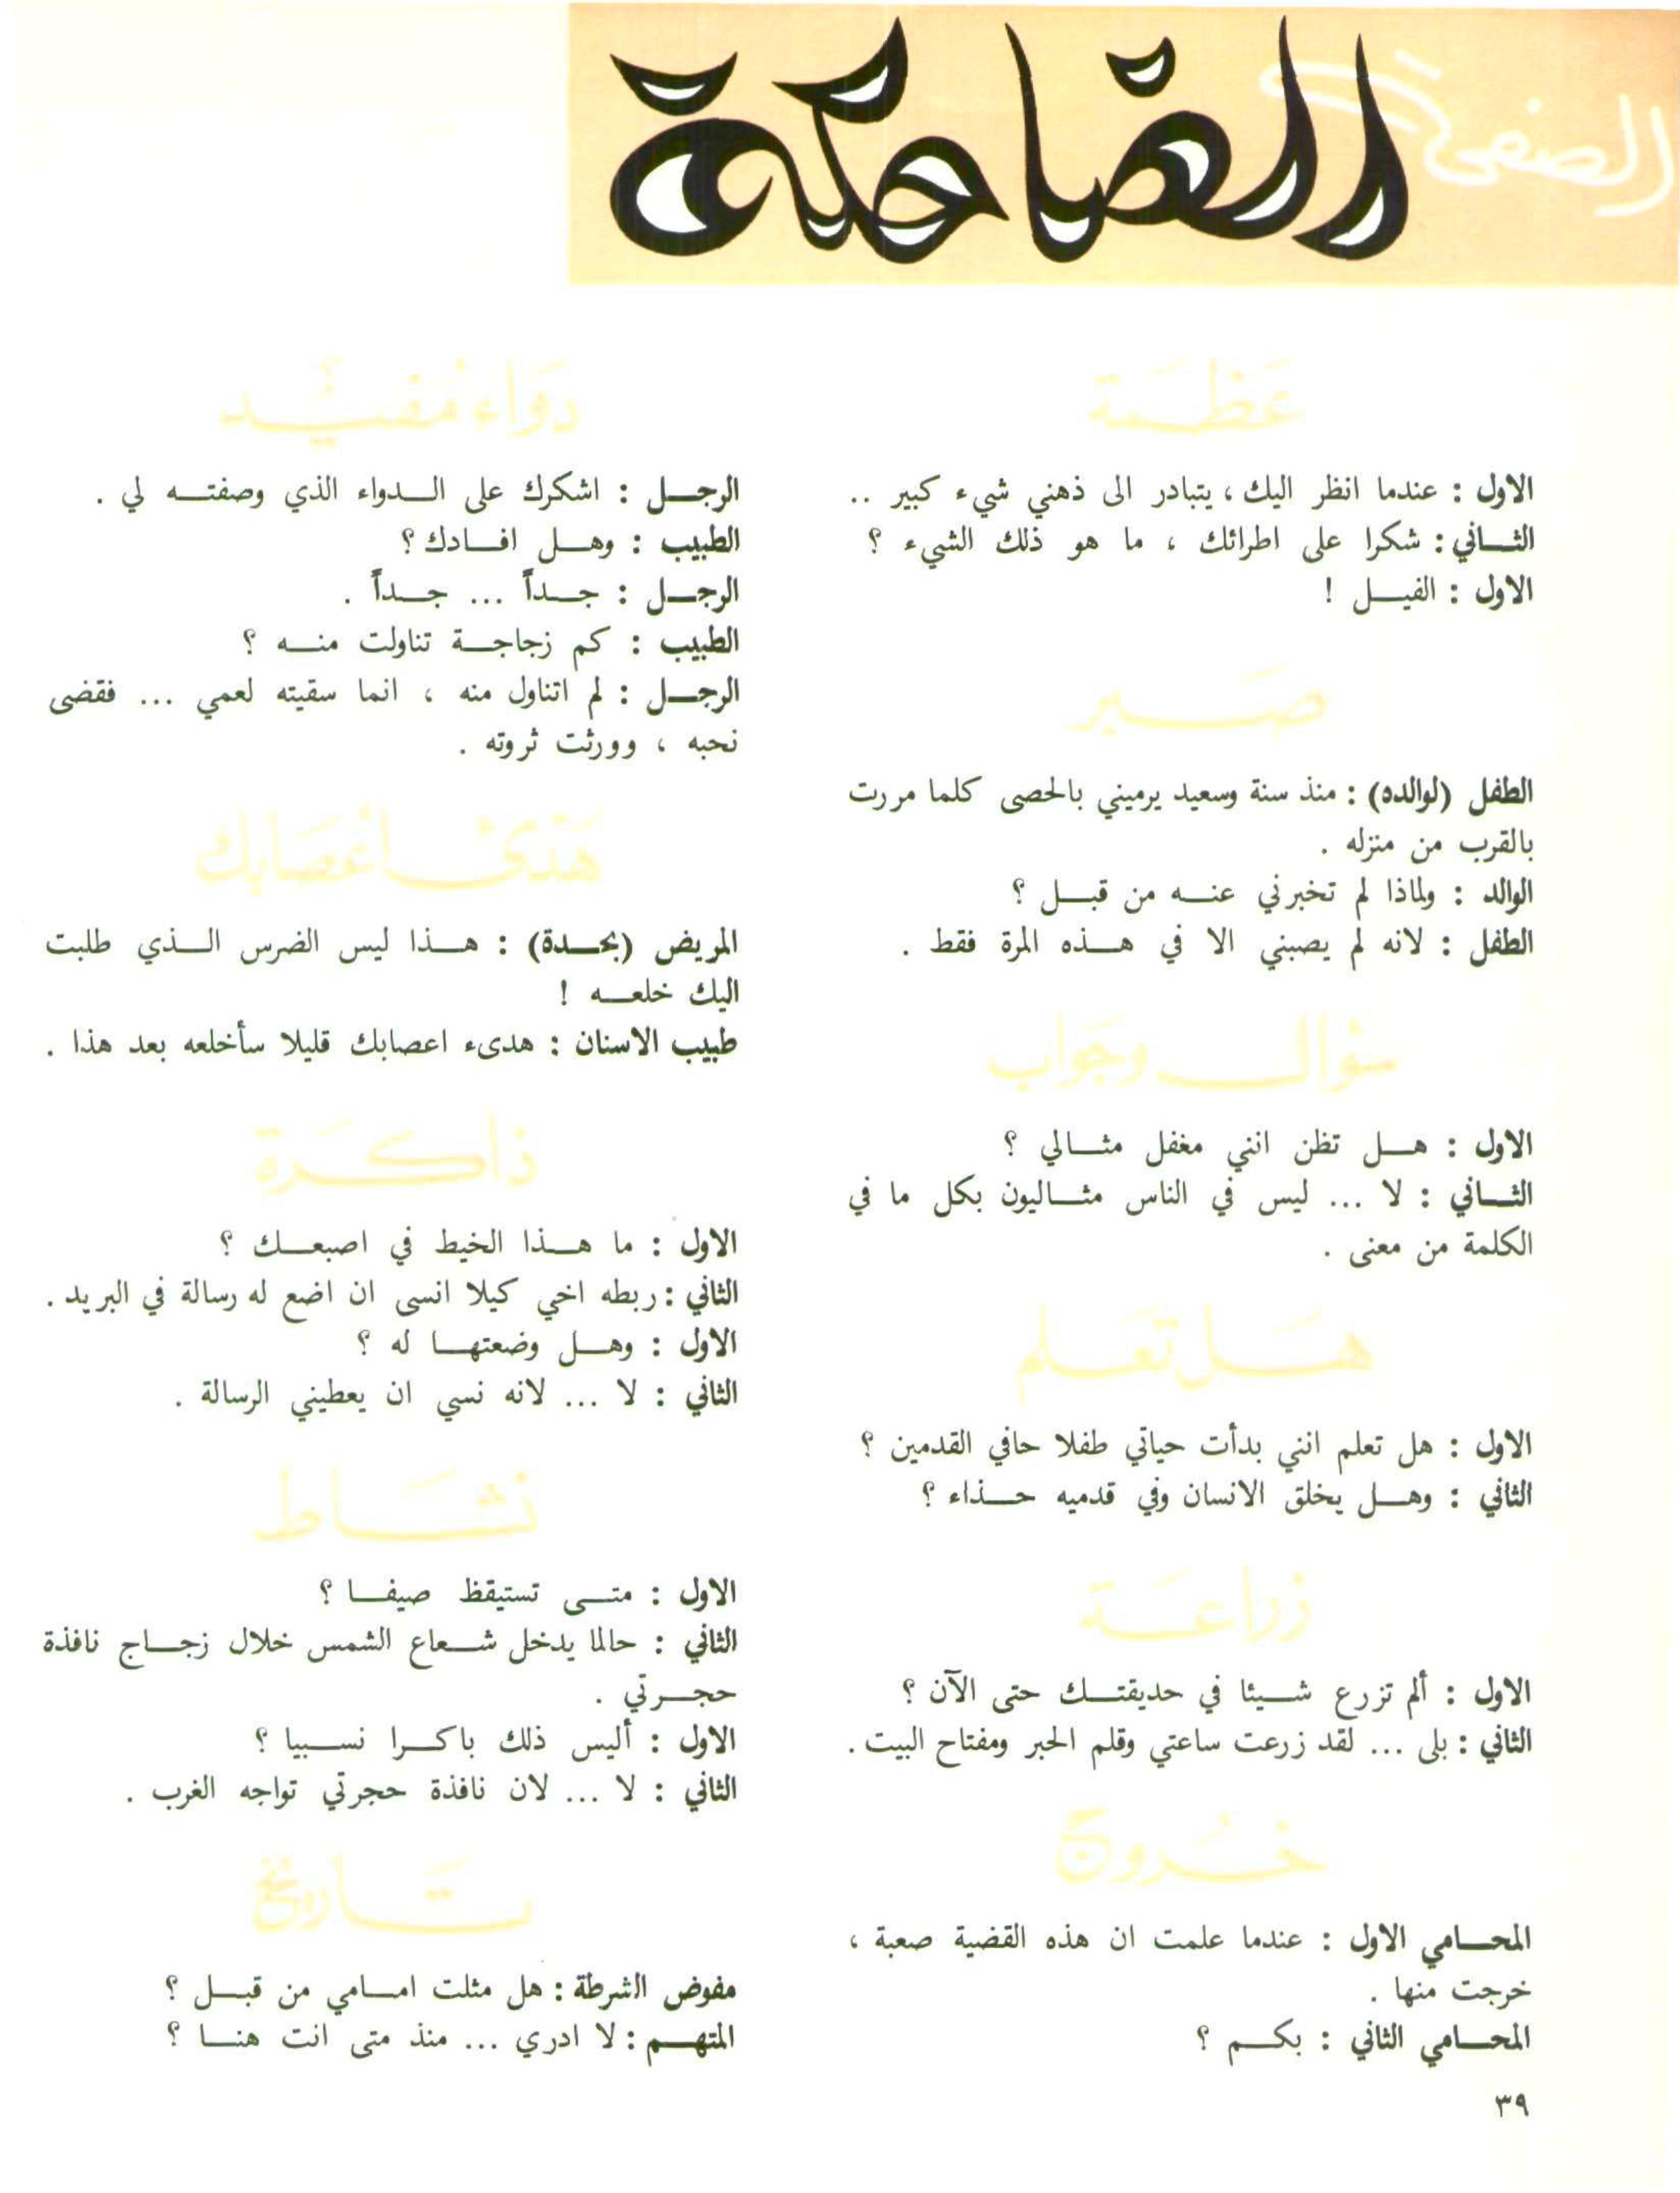 الصفحة الضاحكة
عَظَمَة
الاول : عندما انظر اليك ، يتبادر الى ذهني شيء كبير ..
الثاني : شكرا على اطرائك ، ما هو ذلك الشيء ؟
الاول : الفيل !
صَبر
الطفل (لوالده) : منذ سنة وسعيد يرميني بالحصى كلما مررت
بالقرب من منزله .
الوالد : ولماذا لم تخبرني عنه من قبل ؟
الطفل : لانه لم يصبني الا في هذه المرة فقط .
سؤال وجَواب
الاول : هل تظن انني مغفل مثالي ؟
الثاني : لا ... ليس في الناس مثاليون بكل ما في
الكلمة من معنى .
هَل تعَلم
الاول : هل تعلم انني بدأت حياتي طفلا حافي القدمين ؟
الثاني : وهل يخلق الانسان وفي قدميه حذاء ؟
زراعَة
الاول : ألم تزرع شيئا في حديقتك حتى الآن ؟
الثاني : بلى ... لقد زرعت ساعتي وقلم الحبر ومفتاح البيت .
خُروج
المحامي الاول : عندما علمت ان هذه القضية صعبة ،
خرجت منها .
المحامي الثاني : بكم ؟
٣٩
دَوَاء مُفيْد
الرجل : اشكرك على الدواء الذي وصفته لي .
الطبيب : وهل افادك ؟
الرجل : جداً ... جداً .
الطبيب : كم زجاجة تناولت منه ؟
الرجل : لم اتناول منه ، انما سقيته لعمي ... فقضى
نحبه ، وورثت ثروته .
هَدّىْ أعْصَابك
المريض (بحدة) : هذا ليس الضرس الذي طلبت
اليك خلعه !
طبيب الاسنان : هدىء اعصابك قليلا سأخلعه بعد هذا .
ذاكَرة
الاول : ما هذا الخيط في اصبعك ؟
الثاني : ربطه اخي كيلا انسى ان اضع له رسالة في البريد .
الاول : وهل وضعتها له ؟
الثاني : لا ... لانه نسي ان يعطيني الرسالة .
نشَاط
الاول : متى تستيقظ صيفا ؟
الثاني : حالما يدخل شعاع الشمس خلال زجاج نافذة
حجرتي .
الاول : أليس ذلك باكرا نسبيا ؟
الثاني : لا ... لان نافذة حجرتي تواجه الغرب .
تَاريخ
مفوض الشرطة : هل مثلت امامي من قبل ؟
المتهم : لا ادري ... منذ متى انت هنا ؟